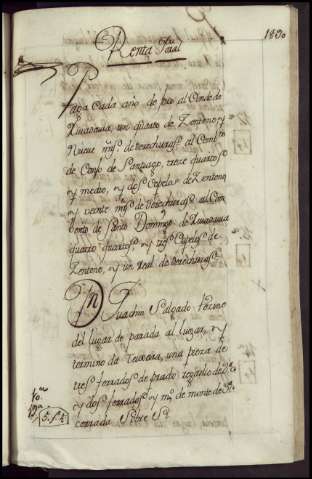 1830
Renta Foral
Paga Cada año de fro al Conde de
Rivadavia, un quarto de Zenteno, y
Nueve mrs de derechuras; al Comto
de Conjo de Santiago, trese quartos
y medio, y dos Copelos de Zenteno
y veinte mrs de derechuras; al Con
vento de Santo Domingo de Rivadavia
quatro quartos y tres Copelos de
Zenteno, y un Real de derechuras
Yn Juachin Salgado Vecino
del lugar de parada al lugar, y
termino da Teixeira, una pieza de
tres ferrados de prado regadio de
y dos ferrados y mo de monte de
cerrada Sobre Sy
5.f.4